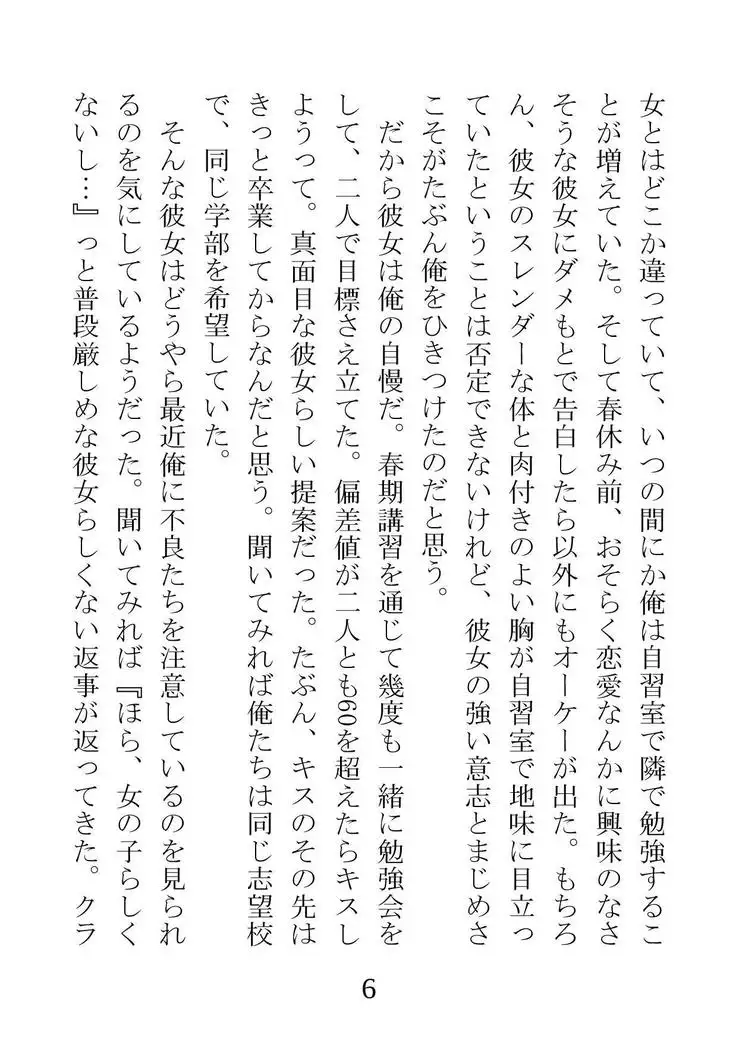 女とはどこか違っていて、いつの間にか俺は自習室で隣で勉強するこ
とが増えていた。そして春休み前、おそらく恋愛なんかに興味のなさ
そうな彼女にダメもとで告白したら以外にもオーケーが出た。もちろ
ん、彼女のスレンダーな体と肉付きのよい胸が自習室で地味に目立っ
ていたということは否定できないけれど、彼女の強い意志とまじめさ
こそがたぶん俺をひきつけたのだと思う。
だから彼女は俺の自慢だ。春期講習を通じて幾度も一緒に勉強会を
して、二人で目標さえ立てた。偏差値が二人とも60を超えたらキスし
ようって。真面目な彼女らしい提案だった。たぶん、キスのその先は
きっと卒業してからなんだと思う。聞いてみれば俺たちは同じ志望校
で、同じ学部を希望していた。
そんな彼女はどうやら最近俺に不良たちを注意しているのを見られ
るのを気にしているようだった。聞いてみれば『ほら、女の子らしく
ないし…』っと普段厳しめな彼女らしくない返事が返ってきた。クラ
6